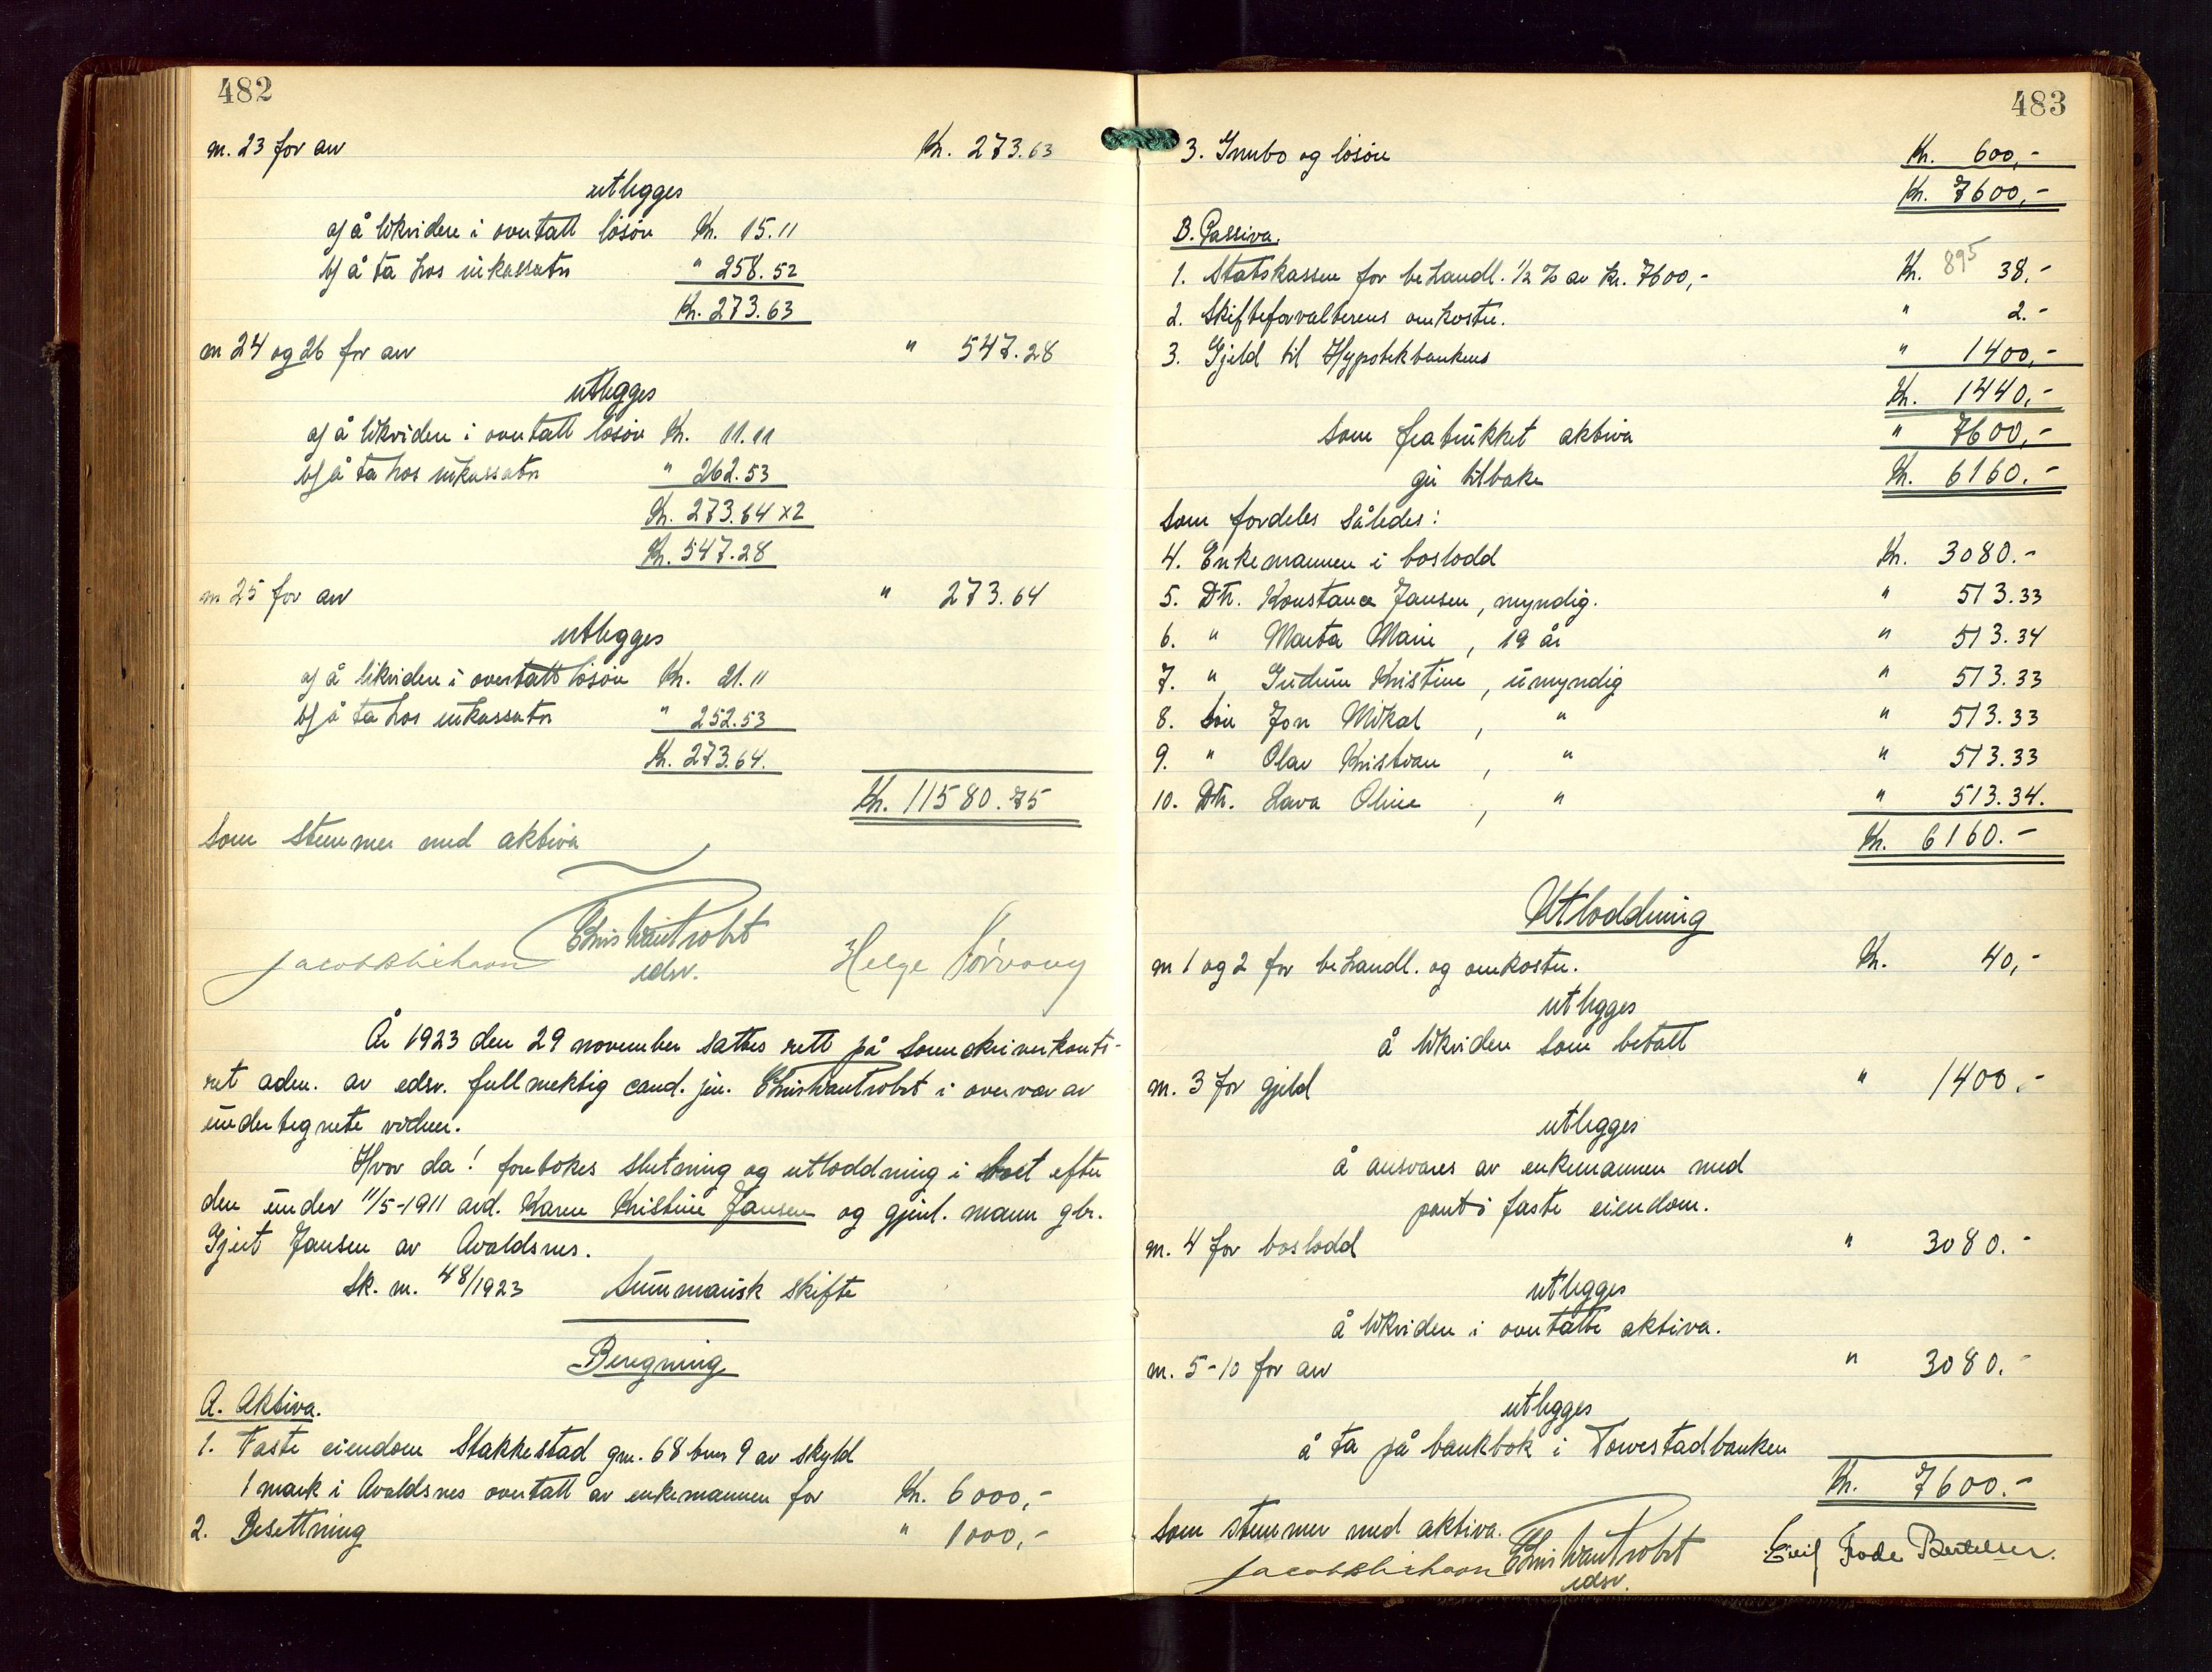 482
nr. 23 for arv Kr. 273.63
utlegges
a/ å likvidere i overtatt løsøre Kr. 15.11
b/ å ta hos inkassator " 258.52
Kr. 273.63
nr 24 og 26 for arv " 547.28
utlegges
a/ å likvidere i overtatt løsøre Kr. 11.11
b/ å ta hos inkassator " 262.53
Kr. 273.64 x2
Kr. 547.28
nr 25 for arv " 273.64
utlegges
a/ å likvidere i overtatt løsøre Kr. 21.11
b/ å ta hos inkassator " 252.53
Kr. 273.64.
Kr. 11580.75
Som stemmer med aktiva
Christian Probst
edsv.
Helge
År 1923 den 29 november sattes rett på Sorenskriverkonto-
ret adm. av edsv. fullmektig cand. jur. Christian Probst i overvær av
undertegnete vidner.
Hvor da! forebokes slutning og utloddning i boet efter
den under 11/5-1911 avd. Karen Kristine Jansen og gjenl. mann gbr.
Gjert Jansen av Avaldsnes.
Sk. nr. 48/1923 Summarisk skifte
Beregning
A. Aktiva.
1. Faste eiendom Stakkestad gnr. 68 bnr 9 av skyld
1 mark i Avaldsnes overtatt av enkemannen for Kr. 6000,-
2. Besettning " 1000,-
483
3. Innbo og løsøre Kr. 600,-
Kr. 7600,-
B. Passiva.
1. Statskassen for behandl. 1/2 % av kr. 7600,- Kr. 895 38.-
2. Skifteforvalterens omkostn. " 2.-
3. Gjeld til Hypotekbanken " 1400,-
Kr. 1440,-
Som fratrukket aktiva " 7600,-
gir tilbake Kr. 6160.-
Som fordeles således:
4. Enkemannen i boslodd Kr. 3080.-
5. Dtr. Konstance Jansen, myndig. " 513.33
6. " Marta Marie, 19 år " 513.34
7. " Gudrun Kristine, umyndig " 513.33
8. Søn Jon Mikal, " " 513.33
9. " Olav Kristian, " " 513.33
10. Dtr. Lava Oline, " " 513.34.
Kr. 6160.-
Utloddning
nr 1 og 2 for behandl. og omkostn. Kr. 40,-
utlegges
å likvidere som betalt
nr. 3 for gjeld " 1400.-
utlegges
å ansvares av enkemannen med
pant i faste eiendom.
nr. 4 for boslodd " 3080.-
utlegges
å likvidere i overtatte aktiva.
nr. 5-10 for arv " 3080.-
utlegges
å ta på bankbok i Torvestadbanken
Kr. 7600.-
Som stemmer med aktiva.
Christian Probst
edsv.
Frode Bertelsen.